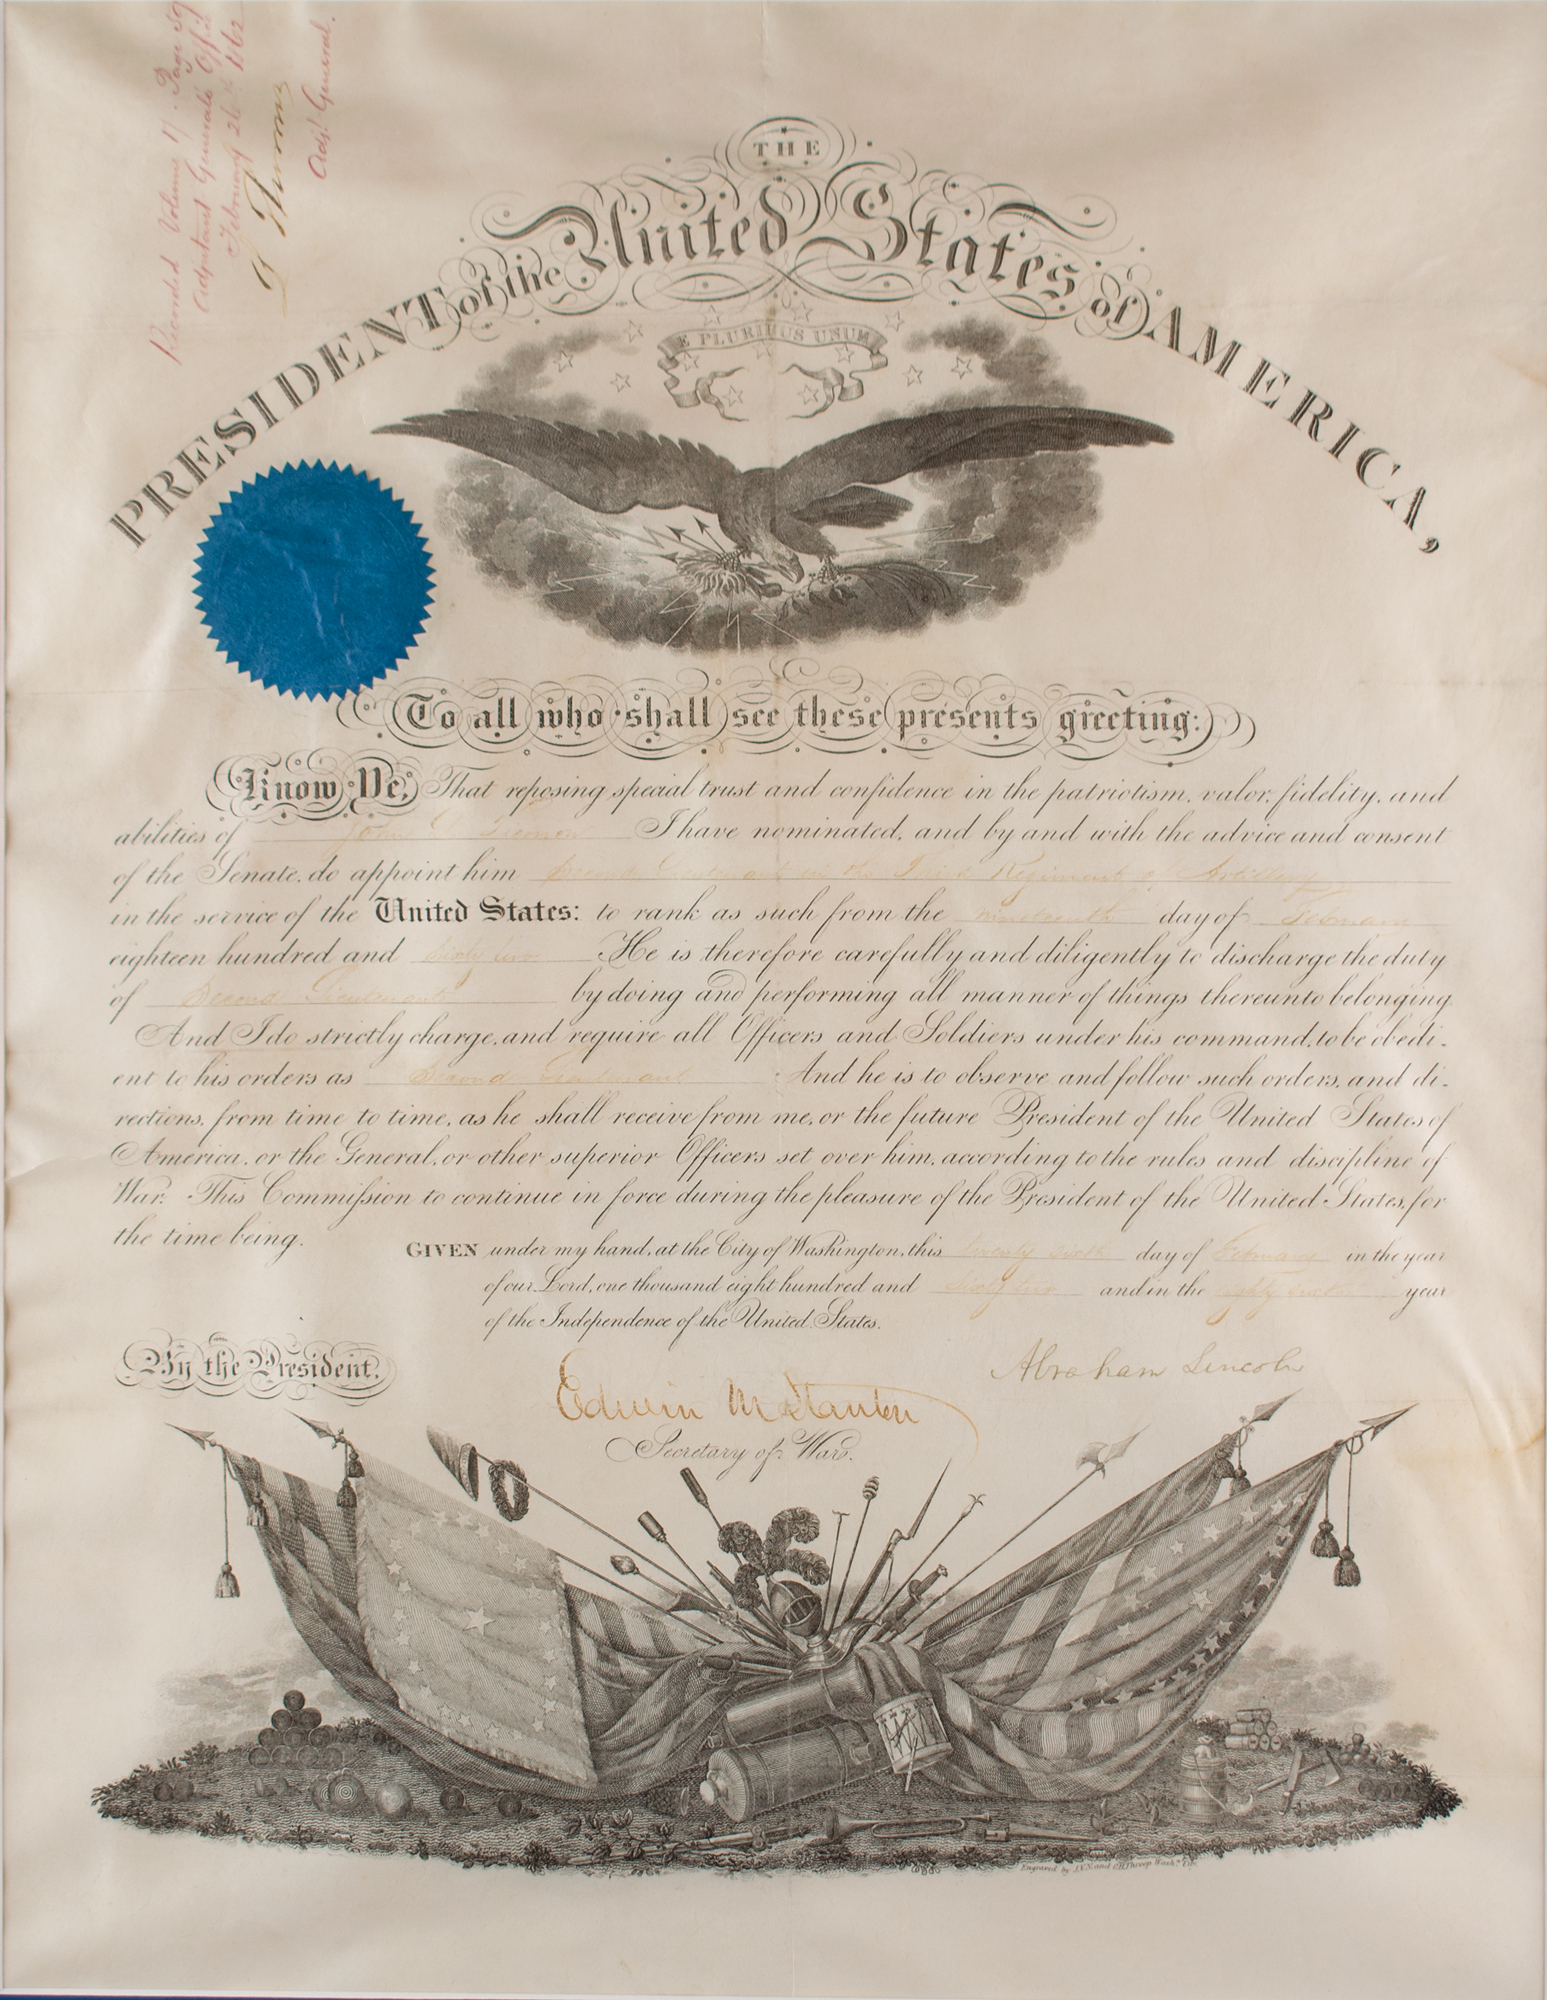 Recorded Volume 17. Page 59
Adjutant Generals Office
February 26th 1862
L Thomas
Adjt General.
THE
PRESIDENT of the United States of AMERICA,
E PLURIBUS UNUM
To all who shall see these presents greeting:
Know Ye, That reposing special trust and confidence in the patriotism, valor, fidelity, and
abilities of John I have nominated, and by and with the advice and consent
of the Senate, do appoint him Second Lieutenant in the Third Regiment of Artillery
in the service of the United States: to rank as such from the nineteenth day of February
eighteen hundred and sixty two He is therefore carefully and diligently to discharge the duty
of Second Lieutenant by doing and performing all manner of things thereunto belonging.
And I do strictly charge, and require all Officers and Soldiers under his command, to be obedi-
ent to his orders as Second Lieutenant And he is to observe and follow such orders, and di-
rections, from time to time, as he shall receive from me, or the future President of the United States of
America, or the General, or other superior Officers set over him, according to the rules and discipline of
War. This Commission to continue in force during the pleasure of the President of the United States, for
the time being.
GIVEN under my hand, at the City of Washington, this twenty sixth day of February in the year
of our Lord, one thousand eight hundred and sixty two and in the eighty sixth year
of the Independence of the United States.
By the President,
Abraham Lincoln
Edwin M Stanton
Secretary of War.
Engraved by J.V.N. and O.H. Throop Washn. City